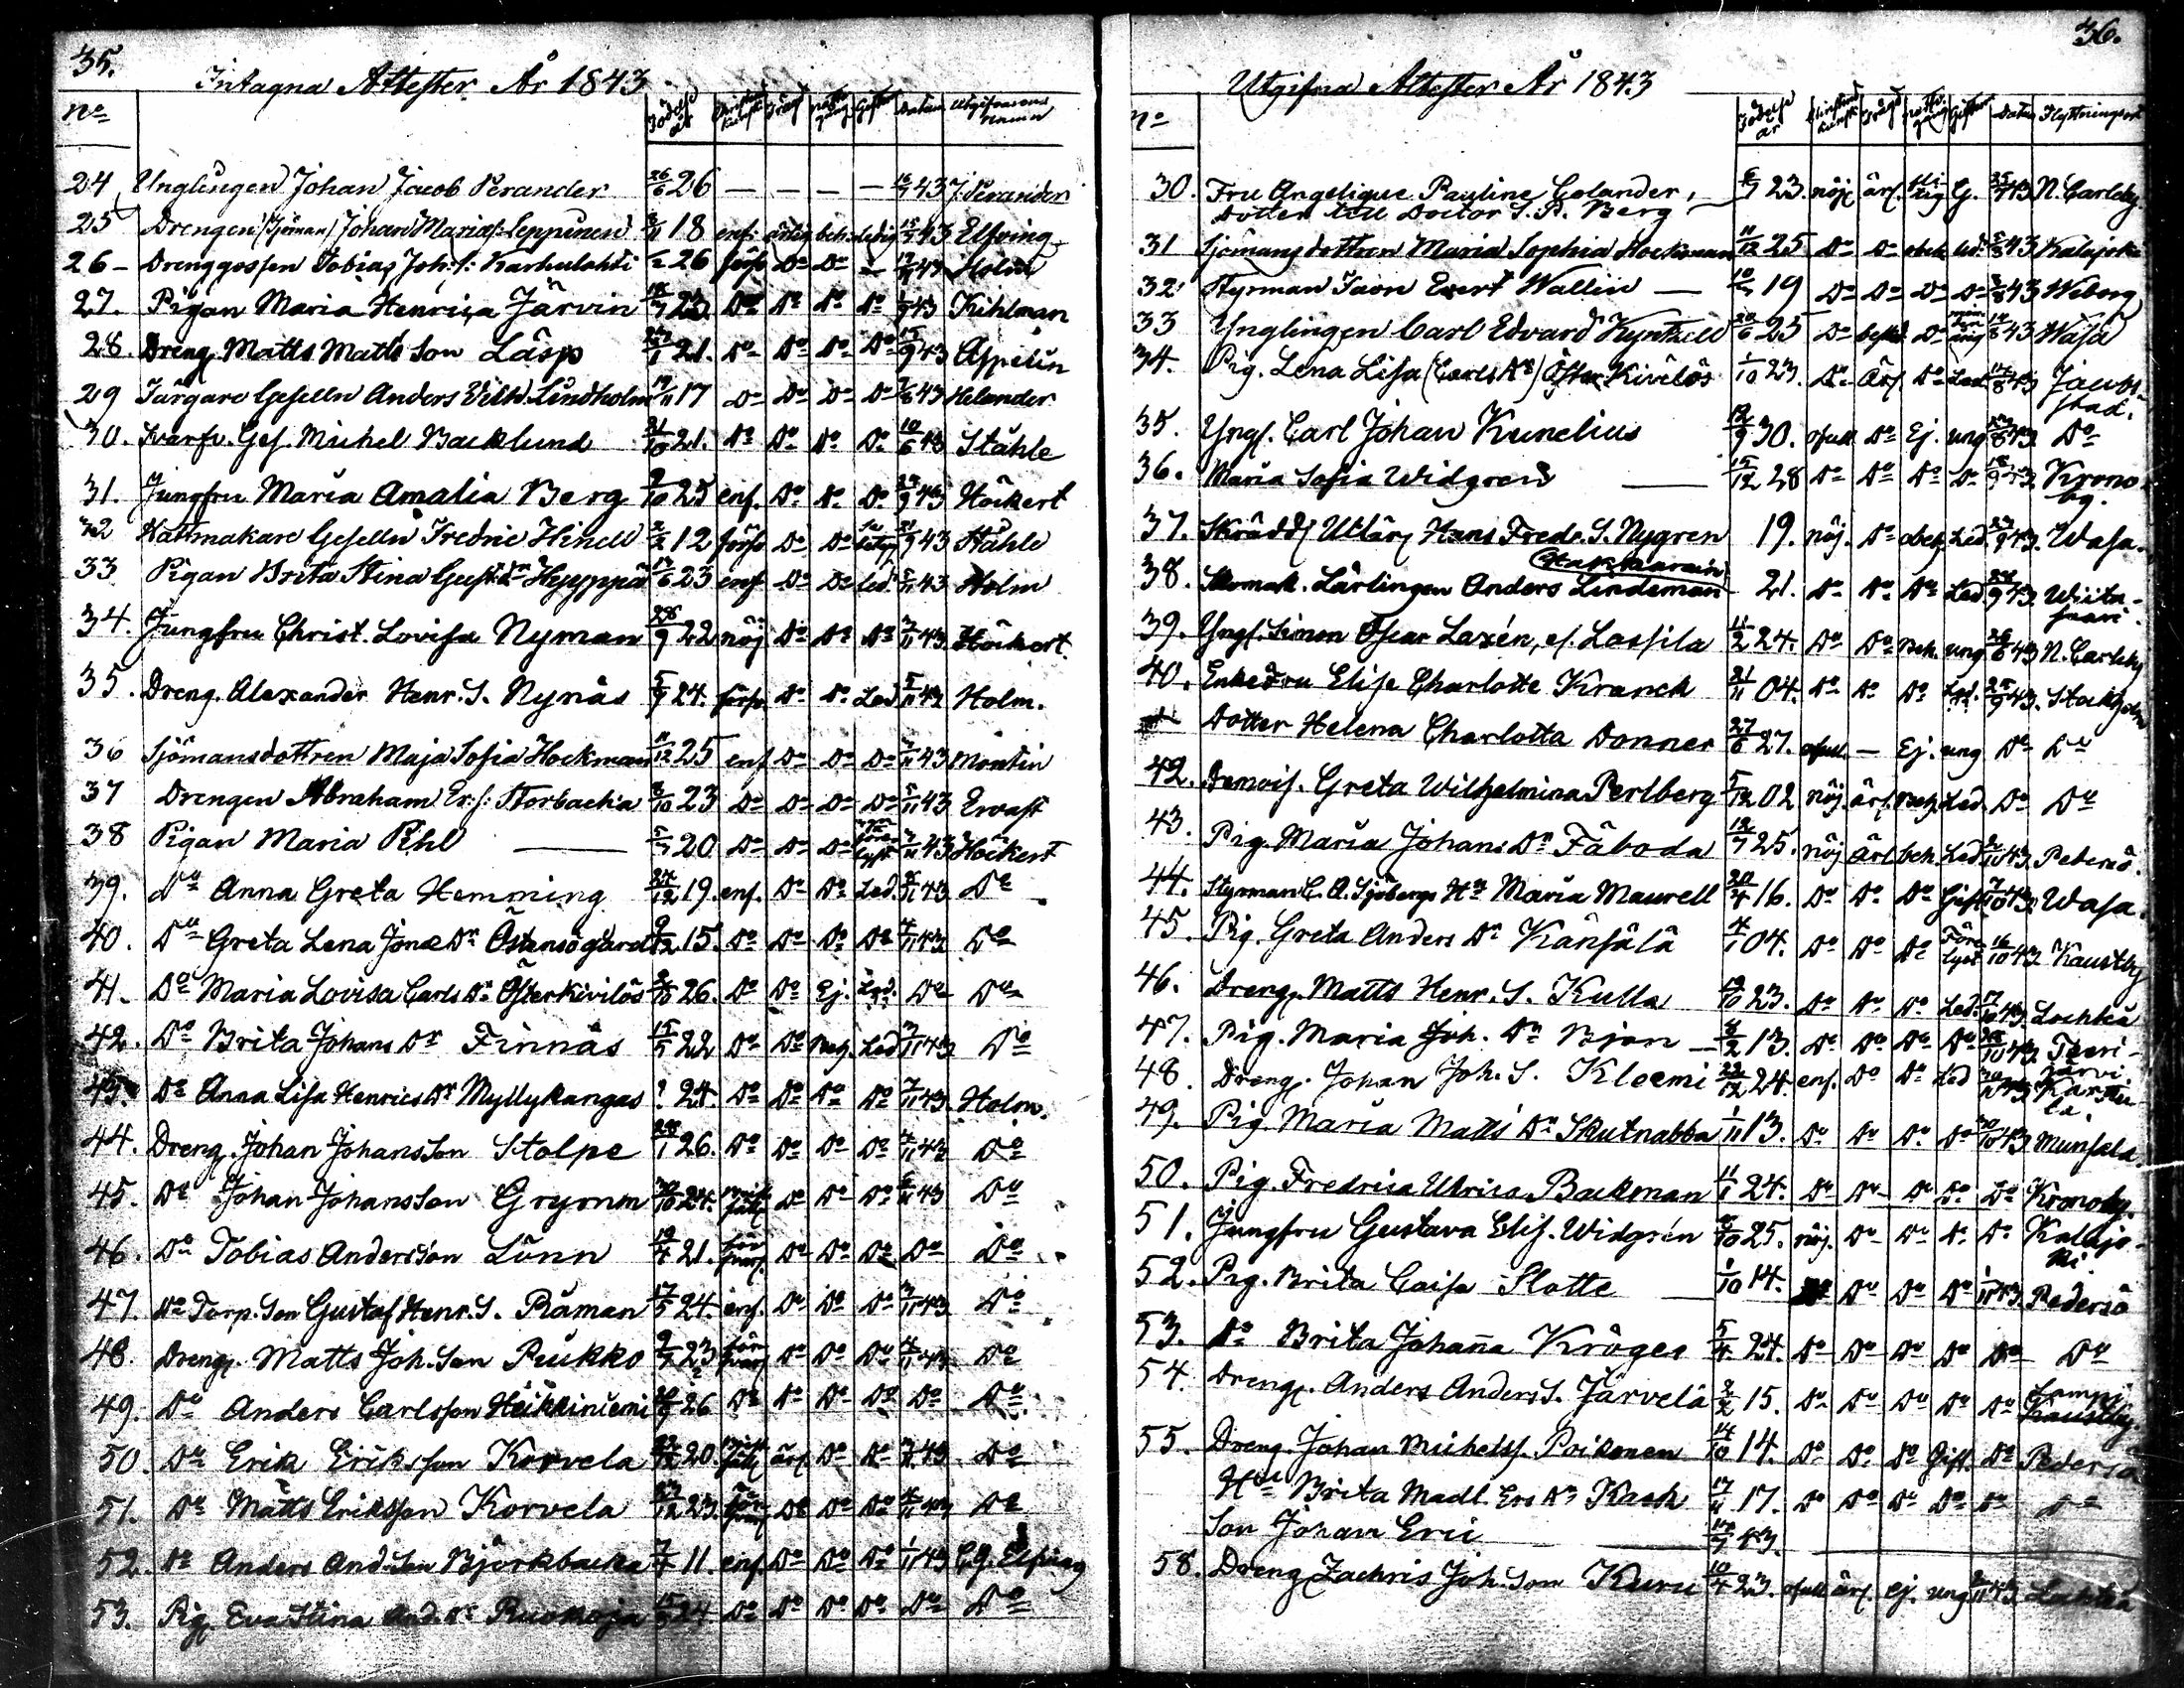 35.
Intagna Attester År 1843
No Födelse år Christen kunsk. Fräjd nattv. gång Gift Datum Utgifvarens namn
24 Ynglingen Johan Jacob Perander 26/6 26 — — — — 16/7 43 J. Perander
25 Drengen (Sjöman) Johan Mariaf: Leppinen 18 enf: ärlig beh: ledig 43 Elfving
26 – Drenggossen Tobias Joh:s: Karhulahti 26 förf Do Do — 43 Holm
27. Pigan Maria Henrica Järvin 23. Do Do Do Do 43 Kihlman
28. Dreng. Matts Matts Son Läsp 21. Do Do Do Do 43 Appelin
29 Färgare Gesellen Anders Vilh. Lindholm 19/11 17 Do Do Do Do 43 Helander
30. Svarfv. Ges. Michel Backlund 31/10 21. Do Do Do Do 10/6 43 Ståhle
31. Jungfru Maria Amalia Berg 25 enf. Do Do Do 43 Höckert
32 Hattmakare Gesellen Fredric Hinell 2/2 12 förf Do Do 43 Ståhle
33 Pigan Brita Stina Gust. dr Hyyppä 23 enf Do Do led. 43 Holm
34. Jungfru Christ. Lovisa Nyman 28/9 22 nöj Do Do Do 43 Höckert.
35. Dreng. Alexander Henr. S. Nynäs 24. förf. Do Do Led 43 Holm.
36 Sjömansdottren Maja Sofia Hockman 11/12 25 enf Do Do Do 43 Montin
37 Drengen Abraham Er:s: Storbacka 23 Do Do Do Do 43 Ervast
38 Pigan Maria Pihl — 20 Do Do Do lyst 43 Höckert
39. Do Anna Greta Hemming 24/12 19. enf. Do Do Led. 43 Do
40. Do Greta Lena Jonæ Dr Östensögård 9/12 15. Do Do Do Do 43 Do
41. Do Maria Lovisa Carls Dr Österkivilös 26. Do Do Ej. Led. Do Do
42. Do Brita Johans Dr Finnäs 22 Do Do Beh. Led 43 Do
43. Do Anna Lisa Henrics Dr Myllykangas ? 24. Do Do Do Do 43 Holm.
44. Dreng. Johan Johansson Stolpe 28/1 26. Do Do Do Do 43 Do
45. Do Johan Johansson Grymm 24. Do Do Do 43 Do
46. Do Tobias Andersson Lönn 21. Do Do Do Do Do
47. Do Torp. Son Gustaf Henr. S. Råman 17/5 24. enf. Do Do Do 43 Do
48. Dreng. Matts Joh. Son Pukko 23 Do Do Do 43 Do
49. Do Anders Carlsson Heikkiniemi 26 Do Do Do Do Do Do
50. Do Erik Eriksson Korvela 20. ärl. Do Do 43 Do
51. Do Matts Eriksson Korvela 23. Do Do Do 43 Do
52. Do Anders And. Son Björkbacka 7/4 11. enf. Do Do Do 43 C. G. Elfving
53. Pig. Eva Stina And. Dr Ruokoja 24 Do Do Do Do Do Do
36.
Utgifna Attester År 1843
No Födelse år Christend. kunsk. Fräjd nattv. gång Gift Datum Flyttningsort
30. Fru Angelique Pauline Colander, — 23. nöj ärl. flitig G. 43 N. Carleby
Dotter till Doctor S. A. Berg
31 Sjömansdottren Maria Sophia Hockman 11/12 25 Do Do obeh led. 43 Kalajoki
32. Styrman Isaac Evert Wallin — 19 Do Do Do Do 43 Wiborg
33 Ynglingen Carl Edvard Kynthell 25 Do Do ung 43 Wasa
34. Pig. Lena Lisa (Carls Dr) Öster Kivilös 1/10 23. Do Ärl. Do Led 43 Jacob
stad.
35. Yngl. Carl Johan Kunelius 30. ofull Do Ej. ung 43 Do
36. Maria Sofia Widgren — 15/12 28 Do Do Do Do 43 Krono
by.
37. Skrädd Utlär. Hans Fredr. S. Nygren 19. nöj. Do obek Led. 43. Wasa.
38. Skomak. Lärlingen Anders Lindeman 21. Do Do Do Led 43 Wiita-
sari.
39. Yngl. Simon Oscar Laxén, el. Lassila 11/2 24. Do Do Beh. ung 43 N. Carleby
40. Enkefru Elise Charlotte Kranck 21/11 04. Do Do Do Led. 43. Stockholm
Dotter Helena Charlotta Donner 27. ofull. — Ej. ung Do Do
42. Demois. Greta Wilhelmina Perlberg 5/12 02 nöj. ärl. Beh. Led. Do Do
43. Pig. Maria Johans Dr Fäboda 25. nöj ärl beh. Led 43. Pedersö.
44. Styrman C. A. Sjöbergs Hu Maria Maurell 16. Do Do Do Gift 43. Wasa.
45. Pig. Greta Anders Dr Känsälä 04. Do Do Do Före lyst 16/10 43 Kaustby
46. Dreng. Matts Henr. S. Kulla 23. Do Do Do Led. 43 Lochteå
47. Pig. Maria Joh. Dr Björn — 13. Do Do Do Do 43 Teeri-
järvi
48. Dreng. Johan Joh. S. Kleemi 22/12 24. enf. Do Do Led 43 Karttu-
la.
49. Pig. Maria Matts Dr Skutnabba 1/11 13. Do Do Do Do 43 Munsala.
50. Pig. Fredrica Ulrica Backman 24. Do Do Do Do Do Kronoby.
51. Jungfru Gustava Elis. Widgrén 25. nöj. Do Do Do Do Kalajo-
ki.
52. Pig. Brita Caisa Slotte — 1/10 14. Do Do Do 43 Pedersö
53. Do Brita Johana Kröger 5/4 24. Do Do Do Do Do Do
54. Dreng. Anders Anders S. Järvelä 2/2 15. Do Do Do Do Do
Kaustby.
55. Dreng. Johan Michelss. Poikonen 14/10 14. Do Do Do Gift. Do Pedersö
Hu Brita Madl. Ers Dr Kack 17. Do Do Do Do Do Do
Son Johan Eric 43.
58. Dreng Zachris Joh. Son Kuru 10/4 23. ofull ärl. ej. ung 43 Lochteå